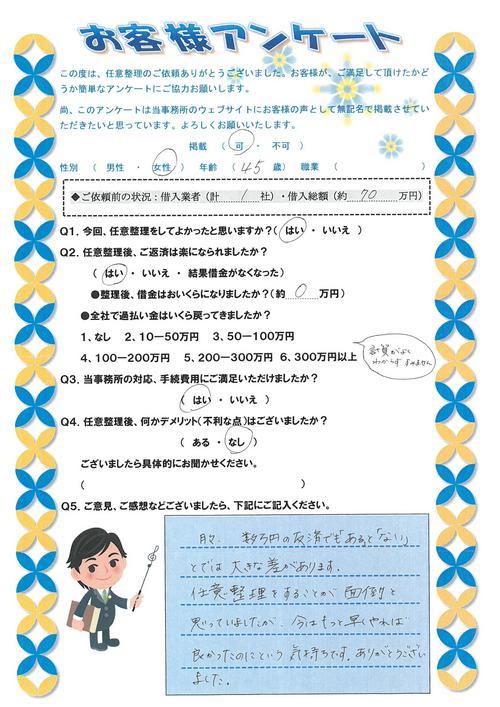 お客様アンケート
この度は、任意整理のご依頼ありがとうございました。お客様が、ご満足して頂けたかど
うか簡単なアンケートにご協力お願いします。
尚、このアンケートは当事務所のウェブサイトにお客様の声として無記名で掲載させてい
ただきたいと思っています。よろしくお願いいたします。
掲載 （ 可 ・ 不可 ）
性別 （ 男性 ・ 女性 ） 年齢 （ 45 歳） 職業 （ ）
◆ご依頼前の状況：借入業者（計 1 社）・借入総額（約 70 万円）
Q1. 今回、任意整理をしてよかったと思いますか？（ はい ・ いいえ ）
Q2. 任意整理後、ご返済は楽になられましたか？
（ はい ・ いいえ ・ 結果借金がなくなった）
●整理後、借金はおいくらになりましたか？（約 0 万円）
●全社で過払い金はいくら戻ってきましたか？
1、なし 2、10－50万円 3、50－100万円
4、100－200万円 5、200－300万円 6、300万円以上
計算がよく
わからず すみません
Q3. 当事務所の対応、手続費用にご満足いただけましたか？
（ はい ・ いいえ ）
Q4. 任意整理後、何かデメリット（不利な点）はございましたか？
（ ある ・ なし ）
ございましたら具体的にお聞かせください。
（ ）
Q5. ご意見、ご感想などございましたら、下記にご記入ください。
月々、数万円の返済でも「あると「ない」
とでは 大きな差があります。
任意整理をすることが 面倒と
思っていましたが、今はもっと早くやれば
良かったのにという 気持ちです。ありがとうござい
ました。